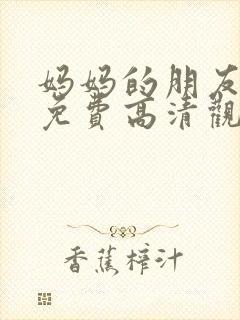 妈妈的朋友
免費高清觀
香蕉榨汁